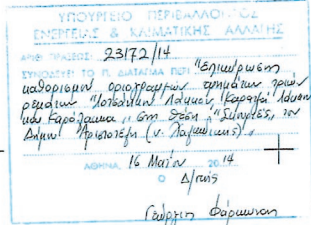 ΥΠΟΥΡΓΕΙΟ ΠΕΡΙΒΑΛΛΟΝΤΟΣ
ΕΝΕΡΓΕΙΑΣ & ΚΛΙΜΑΤΙΚΗΣ ΑΛΛΑΓΗΣ
ΑΡΙΘ. ΠΡΑΞΕΩΣ: 23172/14
ΣΥΝΟΔΕΥΕΙ ΤΟ Π. ΔΙΑΤΑΓΜΑ ΠΕΡΙ "Επικύρωση
καθορισμού οριογραμμών τμημάτων τριών
ρεμάτων Λάκκου, Λάκκου
και , στη θέση , του
Δήμου Αριστοτέλη (ν. Χαλκιδικής)"
ΑΘΗΝΑ, 16 Μαΐου 2014
Ο Δ/ντής
Γεώργιος